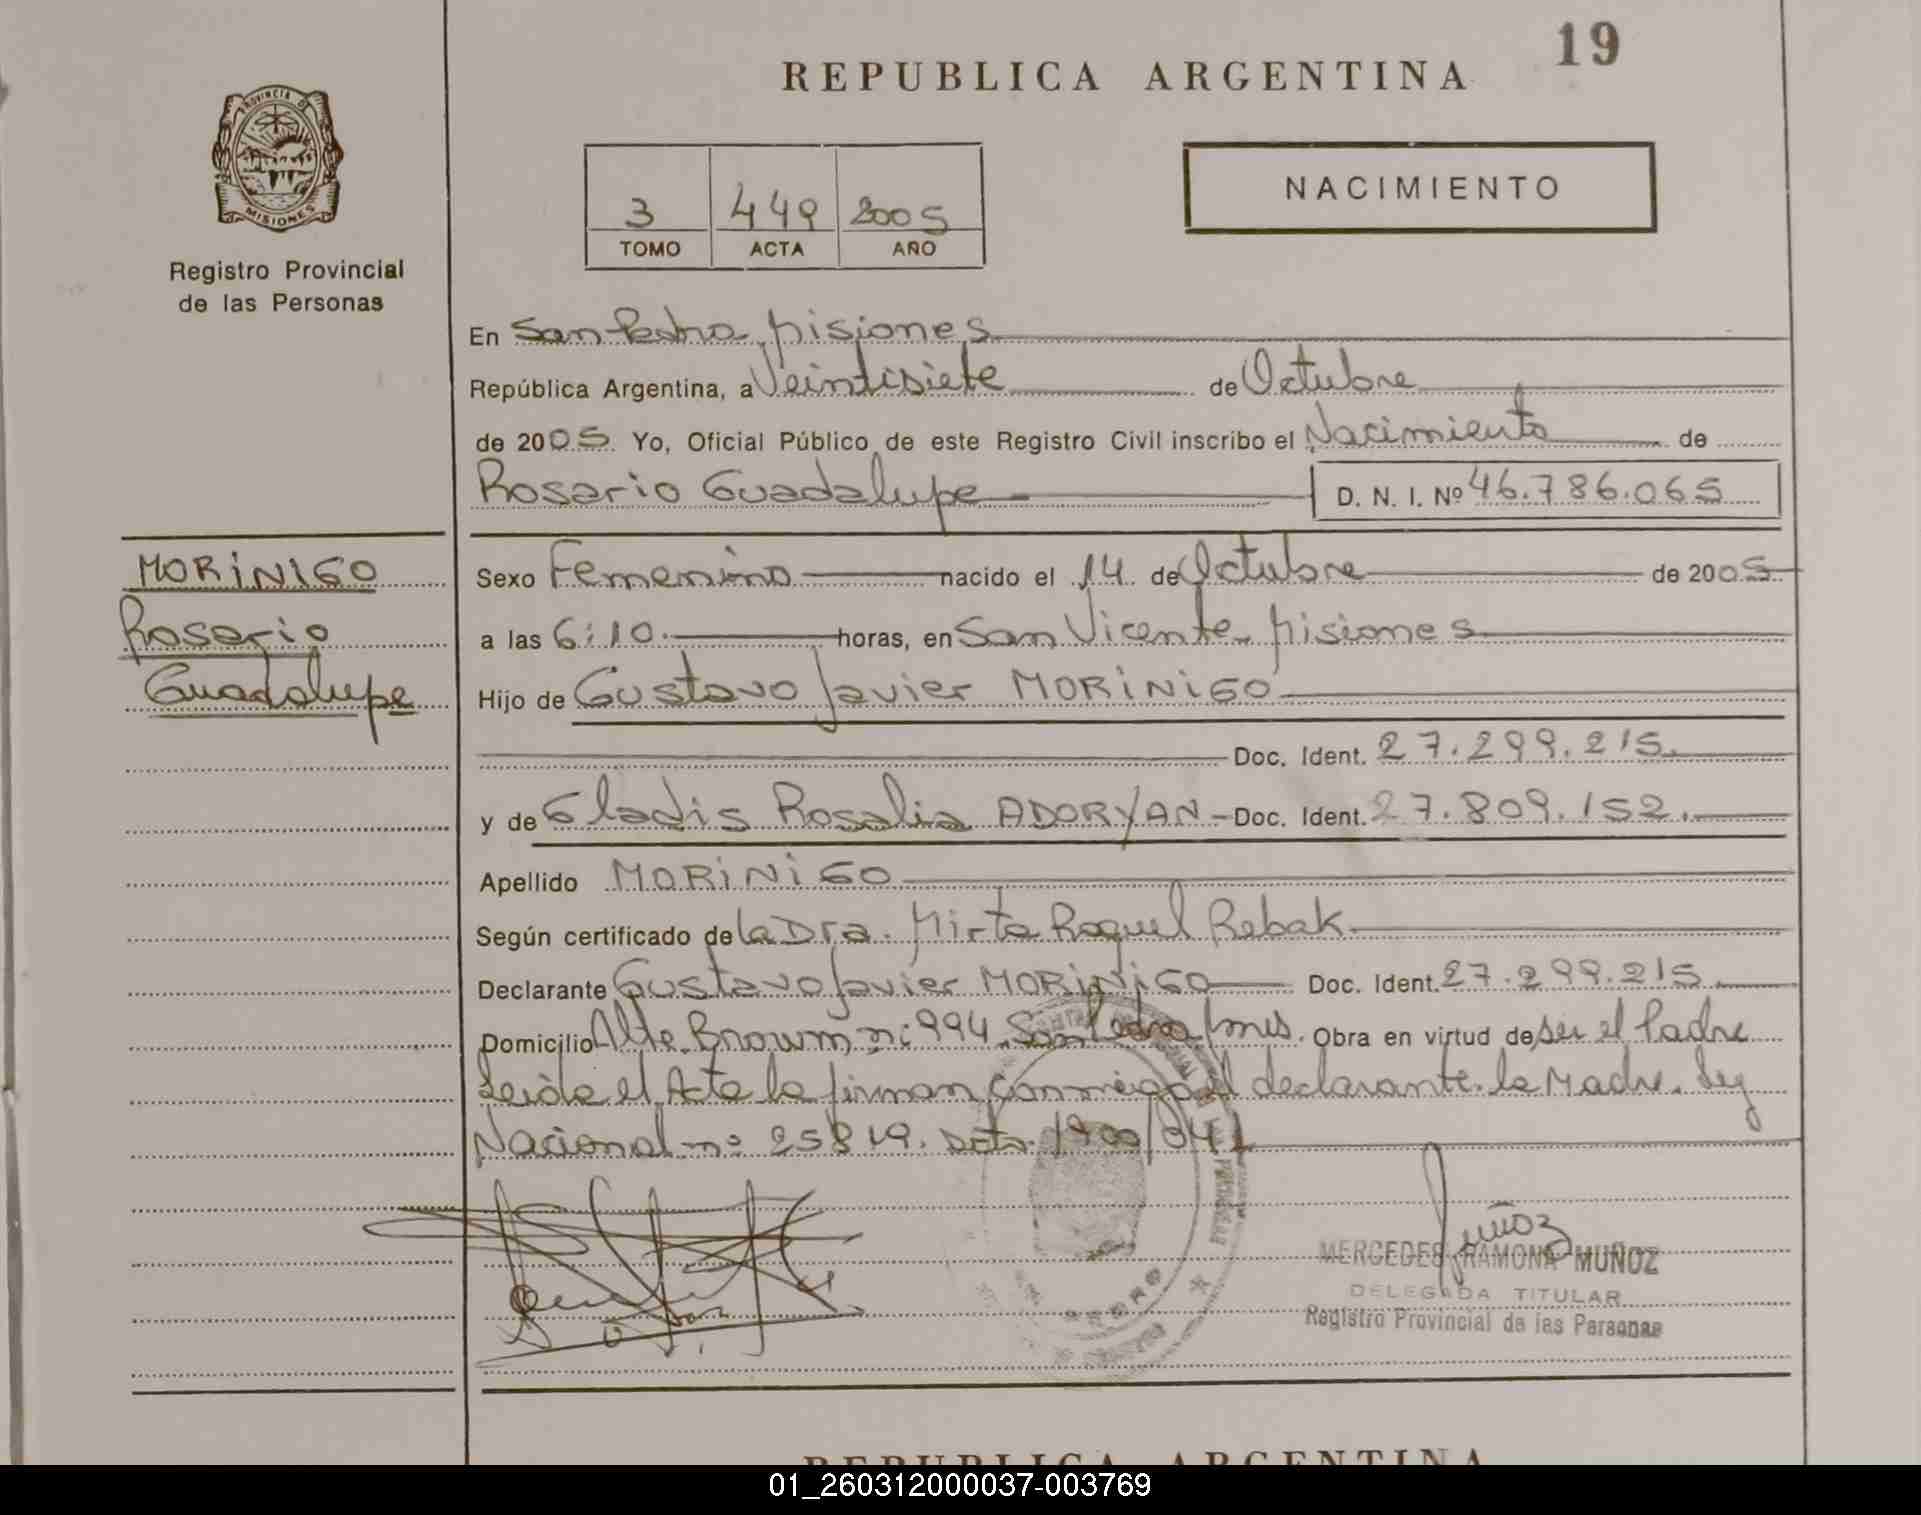 19
REPUBLICA ARGENTINA
PROVINCIA DE
MISIONES
Registro Provincial
de las Personas
3 449 2005
TOMO ACTA AÑO
NACIMIENTO
En San Pedro, Misiones
República Argentina, a Veintisiete de Octubre
de 2005. Yo, Oficial Público de este Registro Civil inscribo el Nacimiento de
Rosario Guadalupe D. N. I. Nº 46.786.065
MORINIGO
Rosario
Guadalupe
Sexo Femenino nacido el 14 de Octubre de 2005
a las 6:10. horas, en San Vicente, Misiones
Hijo de Gustavo Javier MORINIGO
Doc. Ident. 27.299.215.
y de Gladis Rosalia ADORYAN - Doc. Ident. 27.809.152.
Apellido MORINIGO
Según certificado de la Dra. Mirta Raquel Rebak
Declarante Gustavo Javier MORINIGO Doc. Ident. 27.299.215
Domicilio Alte. Brown nº 994 San Pedro, Mnes. Obra en virtud de ser el Padre
Leida el Acta la firman conmigo el declarante. la Madre. Ley
Nacional nº 25819. Dcto. 1900/041
Muñoz
MERCEDES RAMONA MUÑOZ
DELEGADA TITULAR
Registro Provincial de las Personas
REPUBLICA ARGENTINA
01_260312000037-003769